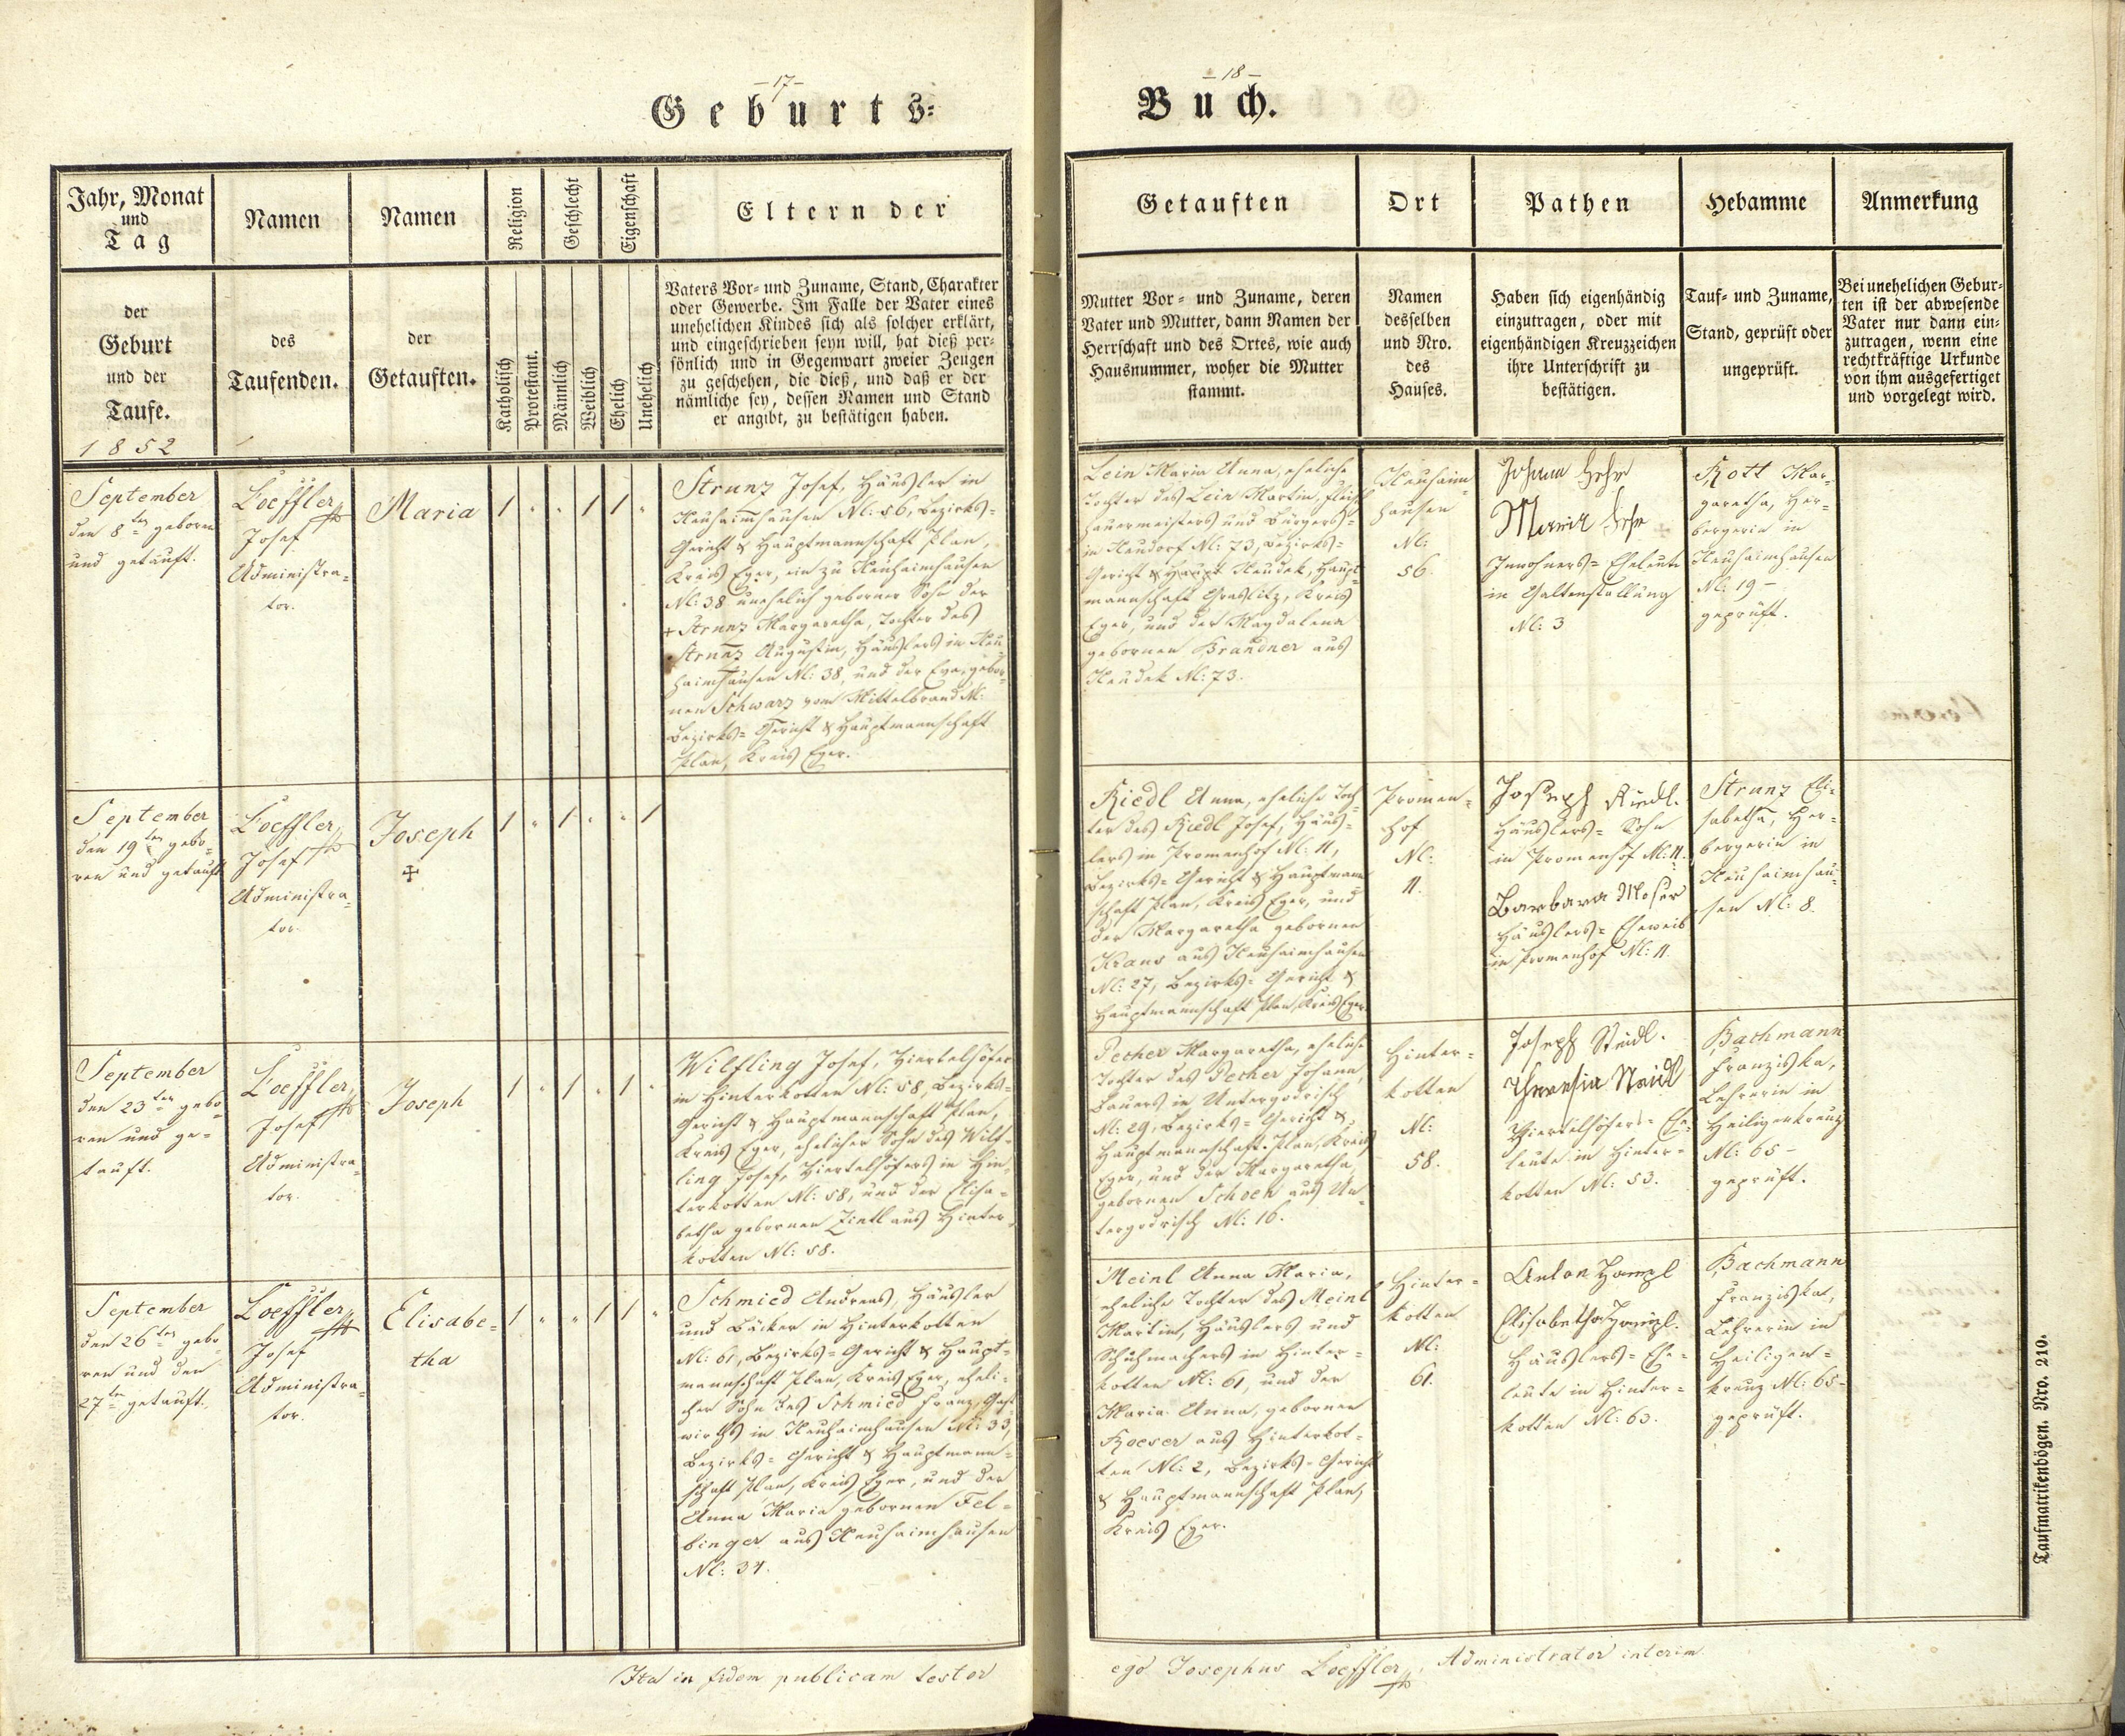 -17-
Geburts-
Jahr, Monat
und
Tag
der
Geburt
und der
Taufe.
1852
Namen
des
Taufenden.
Namen
der
Getauften.
Religion
Katholisch
Protestant.
Geschlecht
Männlich
Weiblich
Eigenschaft
Ehelich
Unehelich
Eltern der
Vaters Vor- und Zuname, Stand, Charakter
oder Gewerbe. Im Falle der Vater eines
unehelichen Kindes sich als solcher erklärt,
und eingeschrieben seyn will, hat dieß per-
sönlich und in Gegenwart zweier Zeugen
zu geschehen, die dieß, und daß er der
nämliche sey, dessen Namen und Stand
er angibt, zu bestätigen haben.
September
den 8ten geboren
und getauft.
Loeffler
Josef
Administra-
tor.
Maria
1 " " 1 1 "
Strunz Josef, Häusler in
Neuhaimhausen N: 56, Bezirks-
Gericht & Hauptmannschaft Plan,
Kreis Eger, ein zu Neuhaimhausen
N: 38 unehelich geborner Sohn der
+ Strunz Margaretha, Tochter des
Strunz Augustin, Häuslers in Neu-
haimhausen N: 38, und der Eva, gebor-
nen Schwarz vom Mittelbrand N:
Bezirks-Gericht & Hauptmannschaft
Plan, Kreis Eger.
September
den 19ten gebo-
ren und getauft
Loeffler
Josef
Administra-
tor.
Joseph
1 " 1 " " 1
September
den 23ten gebo-
ren und ge-
tauft.
Loeffler
Josef
Administra-
tor.
Joseph
1 " 1 " 1 "
Wilfling Josef, Viertelhöfer
in Hinterkotten N: 58, Bezirks-
Gericht & Hauptmannschaft Plan,
Kreis Eger, ehelicher Sohn des Wilf-
ling Josef, Viertelhöfers in Hin-
terkotten N: 58, und der Elisa-
betha gebornen Zintl aus Hinter-
kotten N: 58.
September
den 26ten gebo-
ren und den
27ten getauft.
Loeffler
Josef
Administra-
tor.
Elisabe-
tha
1 " " 1 1 "
Schmied Andreas, Häusler
und Bäcker in Hinterkotten
N: 61, Bezirks-Gericht & Haupt-
mannschaft Plan, Kreis Eger, eheli-
cher Sohn des Schmied Franz, Gast-
wirths in Neuhaimhausen N: 33,
Bezirks-Gericht & Hauptmann-
schaft Plan, Kreis Eger, und der
Anna Maria gebornen Fel-
binger aus Neuhaimhausen
N: 34.
Ita in fidem publicam testor
-18-
Buch.
Getauften
Mutter Vor- und Zuname, deren
Vater und Mutter, dann Namen der
Herrschaft und des Ortes, wie auch
Hausnummer, woher die Mutter
stammt.
Ort
Namen
desselben
und Nro.
des
Hauses.
Pathen
Haben sich eigenhändig
einzutragen, oder mit
eigenhändigen Kreuzzeichen
ihre Unterschrift zu
bestätigen.
Hebamme
Tauf- und Zuname,
Stand, geprüft oder
ungeprüft.
Anmerkung
Bei unehelichen Gebur-
ten ist der abwesende
Vater nur dann ein-
zutragen, wenn eine
rechtkräftige Urkunde
von ihm ausgefertiget
und vorgelegt wird.
Lein Maria Anna, eheliche
Tochter des Lein Martin, Fleisch-
hauermeisters und Bürgers
in Neudorf N: 73, Bezirks-
Gericht & Haupt Neudek, Haupt-
mannschaft Graslitz, Kreis
Eger, und der Magdalena
gebornen Brandner aus
Neudek N: 73.
Neuhaim-
hausen
N:
56.
Johann
Inwohners-Eheleute
in Galtenstallung
N: 3
Kott Mar-
garetha, Her-
bergerin in
Neuhaimhausen
N: 19 -
geprüft.
Riedl Anna, eheliche Toch-
ter des Riedl Josef, Häus-
lers in Promenhof N: 11,
Bezirks-Gericht & Hauptmann-
schaft Plan, Kreis Eger, und
der Margaretha gebornen
Kraus aus Neuhaimhausen
N: 27, Bezirks-Gericht &
Hauptmannschaft Plan, Kreis Eger.
Promen-
hof
N:
11.
Joseph Riedl.
Häuslers-Sohn
in Promenhof N: 11.
Barbara Moser
Häuslers-Eheweib
in Promenhof N: 11.
Strunz Eli-
sabetha, Her-
bergerin in
Neuhaimhau-
sen N: 8.
Pecher Margaretha, eheliche
Tochter des Pecher Johann,
Bauers in Untergodrisch
N: 29, Bezirks-Gericht &
Hauptmannschaft Plan, Kreis
Eger, und der Margaretha,
gebornen Schoch aus Un-
tergodrisch N: 16.
Hinter-
kotten
N:
58.
Joseph
Theresia
Viertelhöfers-Ehe-
leute in Hinter-
kotten N: 53.
Bachmann
Franziska,
Lehrerin in
Heiligenkreuz
N: 65 -
geprüft.
Meinl Anna Maria,
eheliche Tochter des Meinl
Martin, Häuslers und
Schuhmachers in Hinter-
kotten N: 61, und der
Maria Anna, gebornen
Roeser aus Hinterkot-
ten N: 2, Bezirks-Gericht
& Hauptmannschaft Plan,
Kreis Eger.
Hinter-
kotten
N:
61.
Anton
Elisabetha
Häuslers-Ehe-
leute in Hinter-
kotten N: 63.
Bachmann
Franziska,
Lehrerin in
Heiligen-
kreuz N: 65-
geprüft.
ego Josephus Loeffler, Administrator interim
Taufmatrikenbögen. Nro. 210.